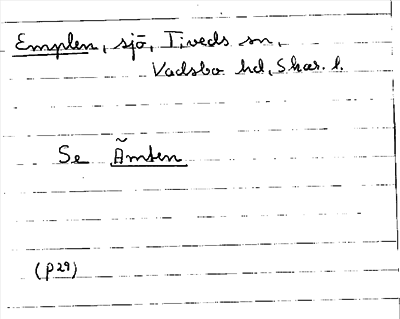 Emplen, sjö, Tiveds sn,
Vadsbo hd, Skar. l.
Se Ämten
(P29)